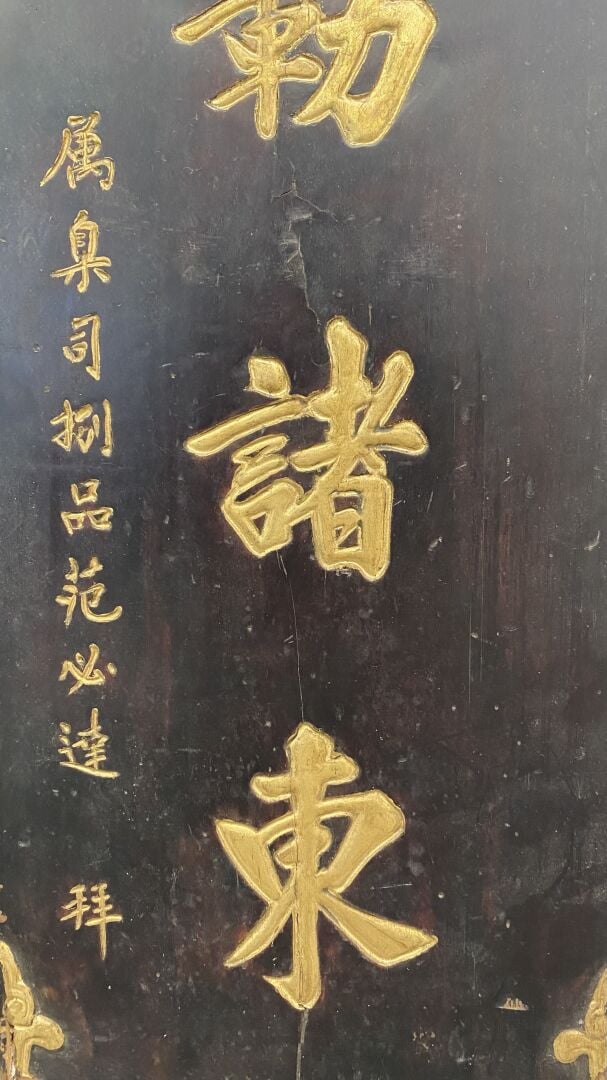 勒諸東
属臬司捌品范必達 拜